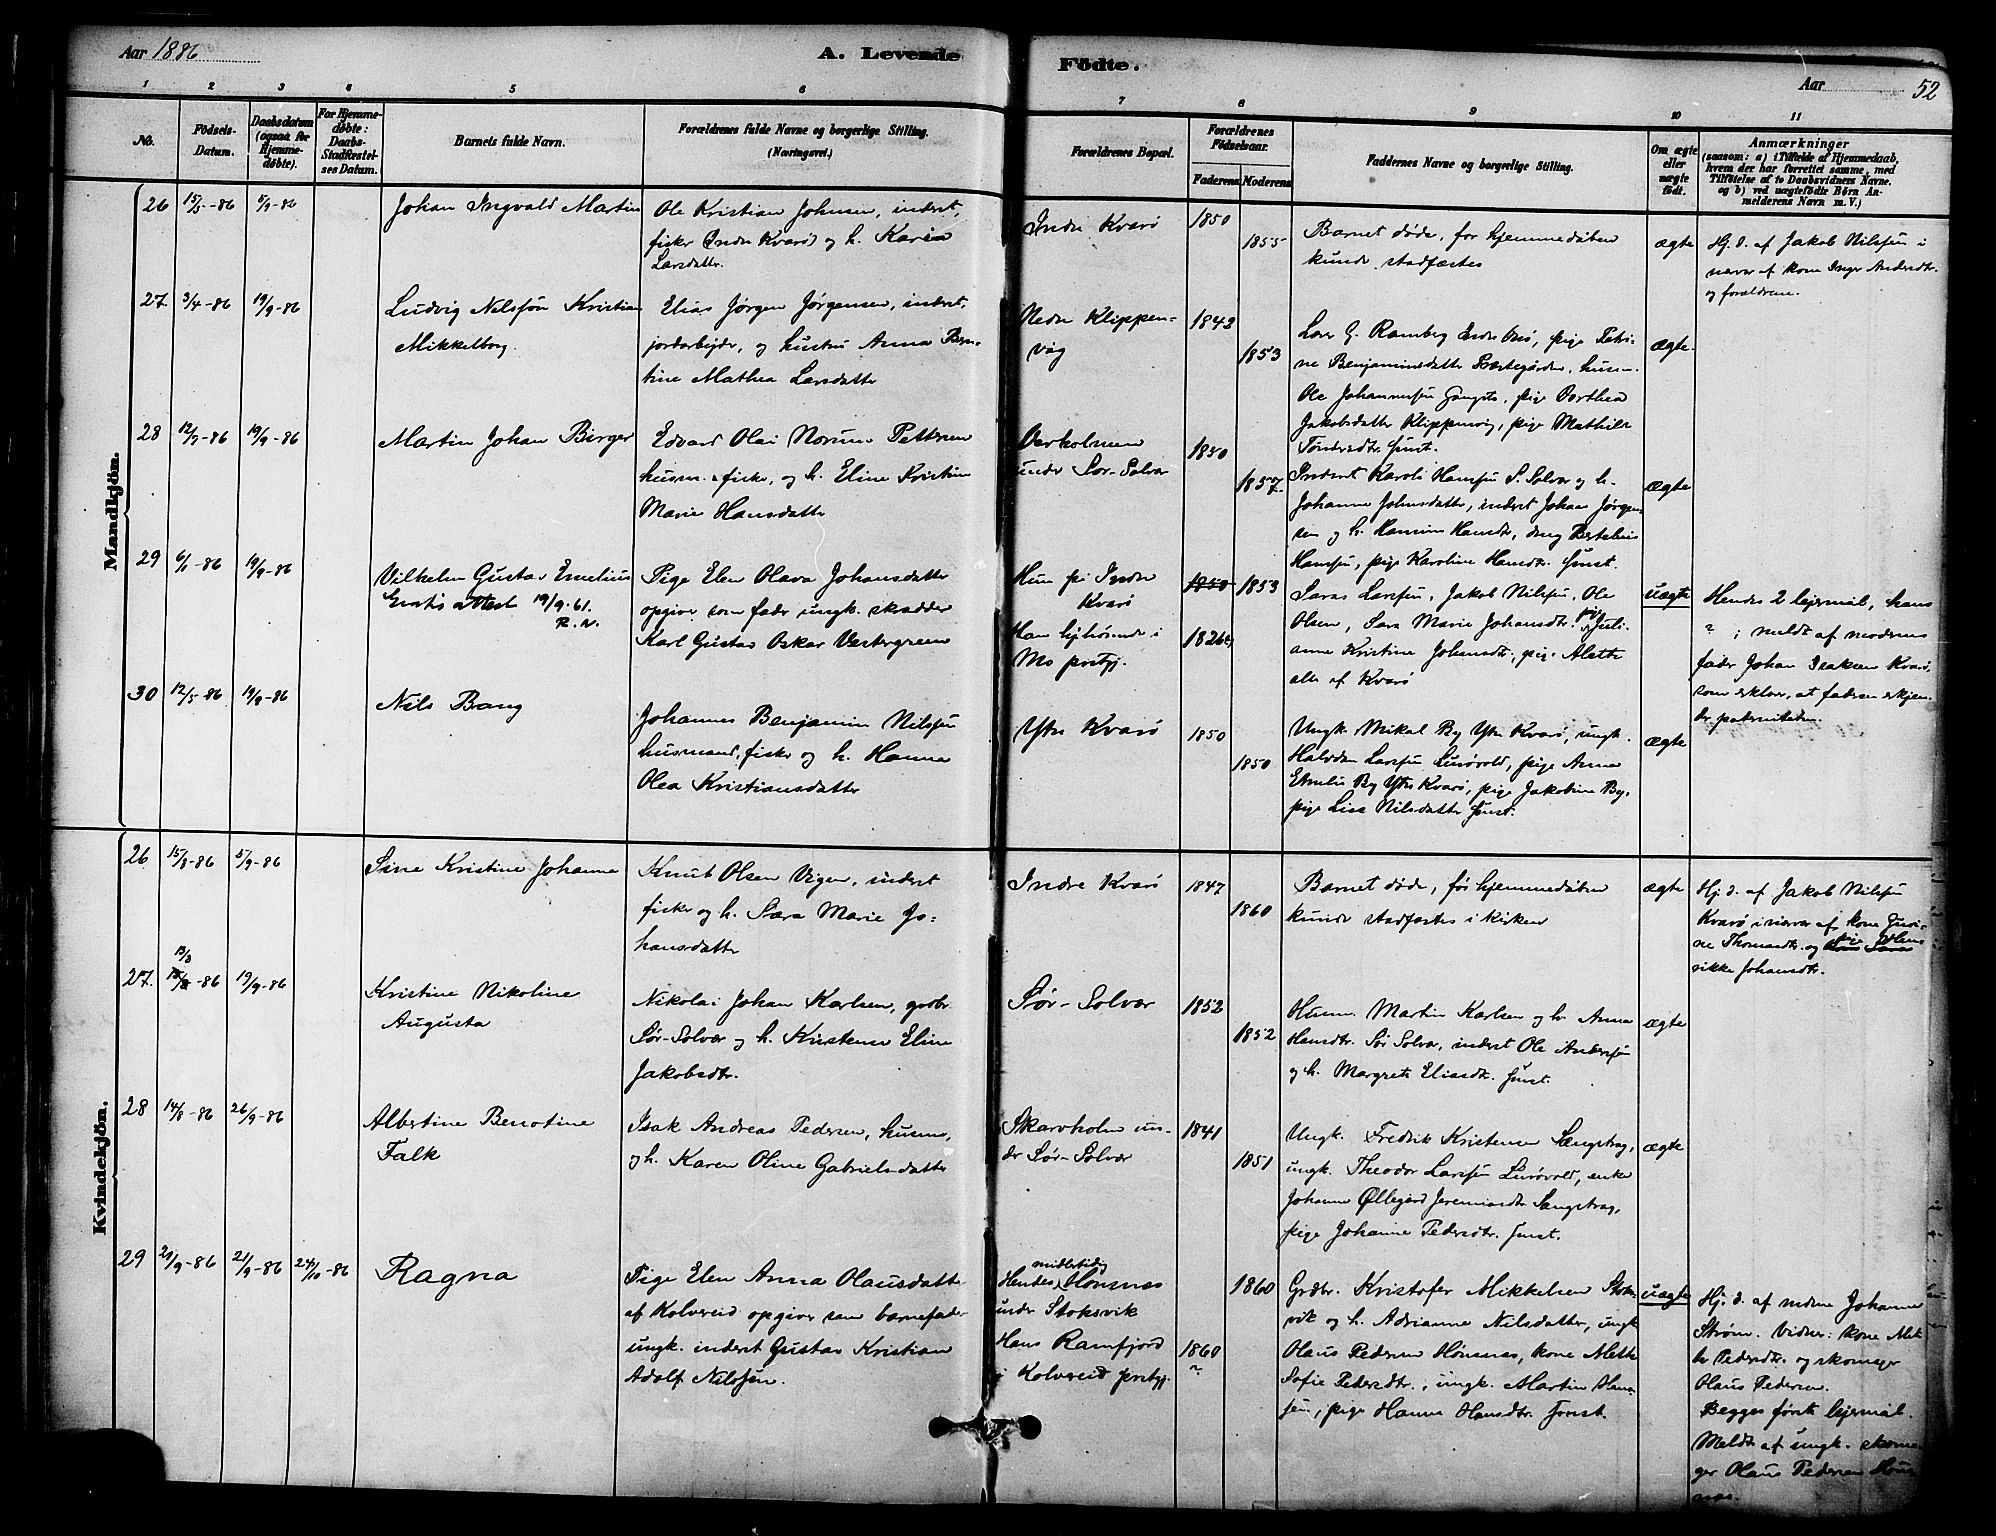 Aar 1886
A. Levende
Födte.
Aar
52
1 2 3 4 5 6 7 8 9 10 11
No.
Födsels-
Datum.
Daabsdatum
(ogsaa for
Hjemme-
döbte).
For Hjemme-
döbte:
Daabs-
Stadfæstel-
ses Datum.
Barnets fulde Navn.
Forældrenes fulde Navne og borgerlige Stilling.
(Næringsvei.)
Forældrenes Bopæl.
Forældrenes
Födselsaar.
Faderens. Moderens.
Faddernes Navne og borgerlige Stilling.
Om ægte
eller
uægte
födt.
Anmærkninger
(saasom: a) i Tilfælde af Hjemmedaab,
hvem der har forrettet samme, med
Tilföielse af to Daabsvidners Navne,
og b) ved uægtefödte Børn An-
melderens Navn m. V.)
Mandkjön.
26 15/5-86 5/9-86
Johan Ingvald Martin
Ole Kristian Johnsen, inderst,
fisker Indre Kvarø og h. Karia
Larsdatter.
Indre Kvarø
1850
1855
Barnet døde, før hjemmedåben
kunde stadfæstes
ægte
Hj. d. af Jakob Nilssen i
nærvær af kone Inger Andersdtr.
og forældrene.
27. 3/4-86 19/9-86
Ludvig Nilsson Kristian
Mikkelborg.
Elias Jørgen Jørgensen, inderst,
jordarbejder, og hustru Anna Bern-
tine Mathea Larsdatter
Nedre Klippen-
våg
1843
1853
Lars G. Ramberg Indre Onø, pige Petri-
ne Benjaminsdatter Præstegården, husm.
Ole Johannessen pige Dorthea
Jakobsdatter Klippenvåg, pige Mathilde
Tønders dtr. sunst.
ægte.
28 12/7-86 19/9-86
Martin Johan Birger
Edvard Olai Norum Pettersen
husm. & fisker, og h. Eline Kristine
Marie Hansdatter
Oterholmen
under Sør-Solvær
1850
1857.
Inderst Karoli Hanssen S. Solvær og h.
Johanne Johnsdatter, inderst Johan Jørgen-
sen og h. Hansine Hansdtr, dreng Bertheus
Hanssen, pige Karoline Hansdtr. sunst.
ægte
29 6/1-86 19/9-86
Vilhelm Gustav Emelius
Gratis attest 19/9.61.
R. N.
Pige Elen Olava Johansdatter
opgiver som fader ungk. skrædder
Karl Gustav Oskar Vestergreen
Hun på Indre
Kvarø
Han hjemhørende i
Mo prstgj.
1850 1853
1826
Saras Larssen, Jakob Nilssen, Ole
Olsen, Sara Marie Johansdtr. pige Juli-
anne Kristine Johansdtr., pige Alette
alle af Kvarø
uægte
Hendes 2 lejermål, hans
? ; meldt af moderens
fader Johan Isaksen Kvarø,
som erklær, at faderen erkjen-
der paterniteten.
30 12/5-86 19/9-86
Nils Bang
Johannes Benjamin Nilssen
husmand, fisker og h. Hanna
Olea Kristiansdatter
Ytre Kvarø
1850
1850
Ungk. Mikal By Ytre Kvarø, ungk.
Halvdan Larssen Lurøvold, pige Anna
Emelie By Ytre Kvarø, pige Jakobine By,
pige Lisa Nilsdatter sunst.
ægte
Kvindekjön.
26 15/8-86 5/9-86
Sine Kristine Johanne
Knut Olsen Vigen, inderst
fisker og h. Sara Marie Jo-
hansdatter
Indre Kvarø
1847
1860
Barnet døde, før hjemmedåben
kunde stadfæstes i kirken
ægte
Hj. d. af Jakob Nilssen
Kvarø i nærvær af kone
ne Thomasdtr. og pige Hen-
rikke Johansdtr.
27. 13/3 -86 19/9-86
Kristine Nikoline
Augusta
Nikolai Johan Karlsen, grdbr.
Sør-Solvær og h. Kirstense Eline
Jakobsdtr.
Sør-Solvær
1852
1852
Husm. Martin Karlsen og h. Anna
Hansdtr. Sør Solvær, inderst Ole Anderssen
og h. Margrete Eliasdtr. sunst.
ægte
28 14/8-86 26/9-86
Albertine Benotine
Falk
Isak Andreas Pedersen, husm,
og h. Karen Oline Gabrielsdatter
Skarvholm un-
der Sør-Solvær
1841
1851
Ungk. Fredrik Kristensen Sængstrag,
ungk. Theodor Larssen Lurøvold, enke
Johanne Øllegård Jeremiasdtr Sængstrag,
pige Johanne Pedersdtr. sunst.
ægte
29 21/9-86 21/9-86 24/10-86
Ragna
Pige Elen Anna Olausdatter
af Kolvereid opgiver som barnefader
ungk. inderst Gustav Kristian
Adolf Nilssen.
midlertidig
Hendes Hønsnæs
under Stoksvik
Hans Ramfjord
i Kolvereid prstgj.
1860
1860
~
Grdbr. Kristofer Mikkelsen Stoks-
vik og h. Adrianne Nilsdatter, ungk
Olaus Pedersen Hønsnæs, kone Alette
Sofie Pedersdtr., ungk. Martin Hans-
sen, pige Hanna Hansdtr. sunst.
uægte
Hj. d. af Johanne
Strøm. Vidner: kone Alet-
te Pedersdtr. og skomager
Olaus Pedersen.
Begges første lejermål.
Meldt af ungk. skoma-
ger Olaus Pedersen Høns-
næs.